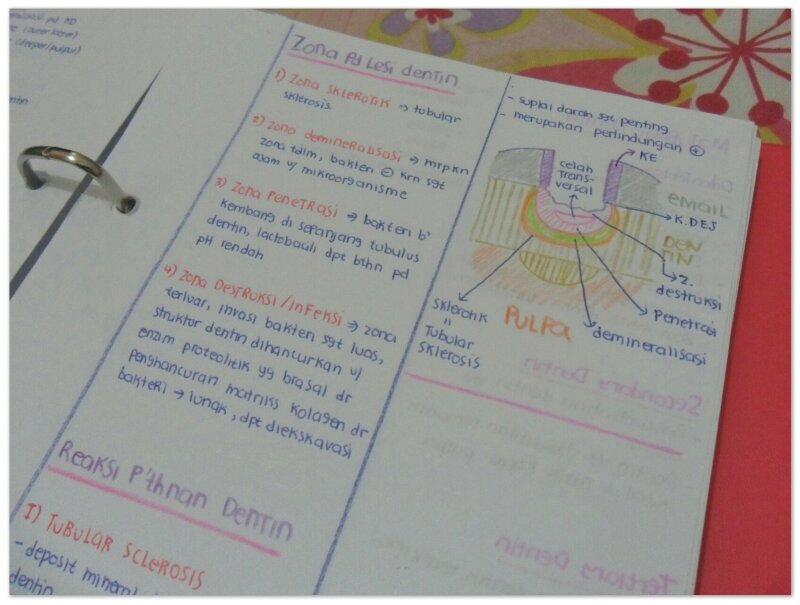 (outer/lateral)
(deeper/pulpal)
dentin
Zona pd Lesi dentin
1) Zona SKLEROTIK → tubular
sklerosis
2) Zona demineralisasi → mrpkn
zona tdlm, bakteri ⊖ krn sgt
asam u/ mikroorganisme
3) Zona Penetrasi → bakteri b'
kembang di sepanjang tubulus
dentin, lactobacili dpt bthn pd
pH rendah
4) Zona Destruksi/infeksi → zona
terluar, invasi bakteri sgt luas,
struktur dentin dihancurkan u/
enzim proteolitik yg brasal dr
penghancuran matriks kolagen dr
bakteri → lunak, dpt diekskavasi
Reaksi P'thnan Dentin
I) TUBULAR SCLEROSIS
- deposit mineral
dentin
- suplai darah sgt penting
- merupakan perlindungan ⊕
celah
Trans-
versal
KE
EMAIL
K.DEJ
DEN
TIN
Z.
destruksi
penetrasi
demineralisasi
PULPA
Sklerotik
=
Tubular
Sklerosis
Secondary Dentin
Tertiary Dentin